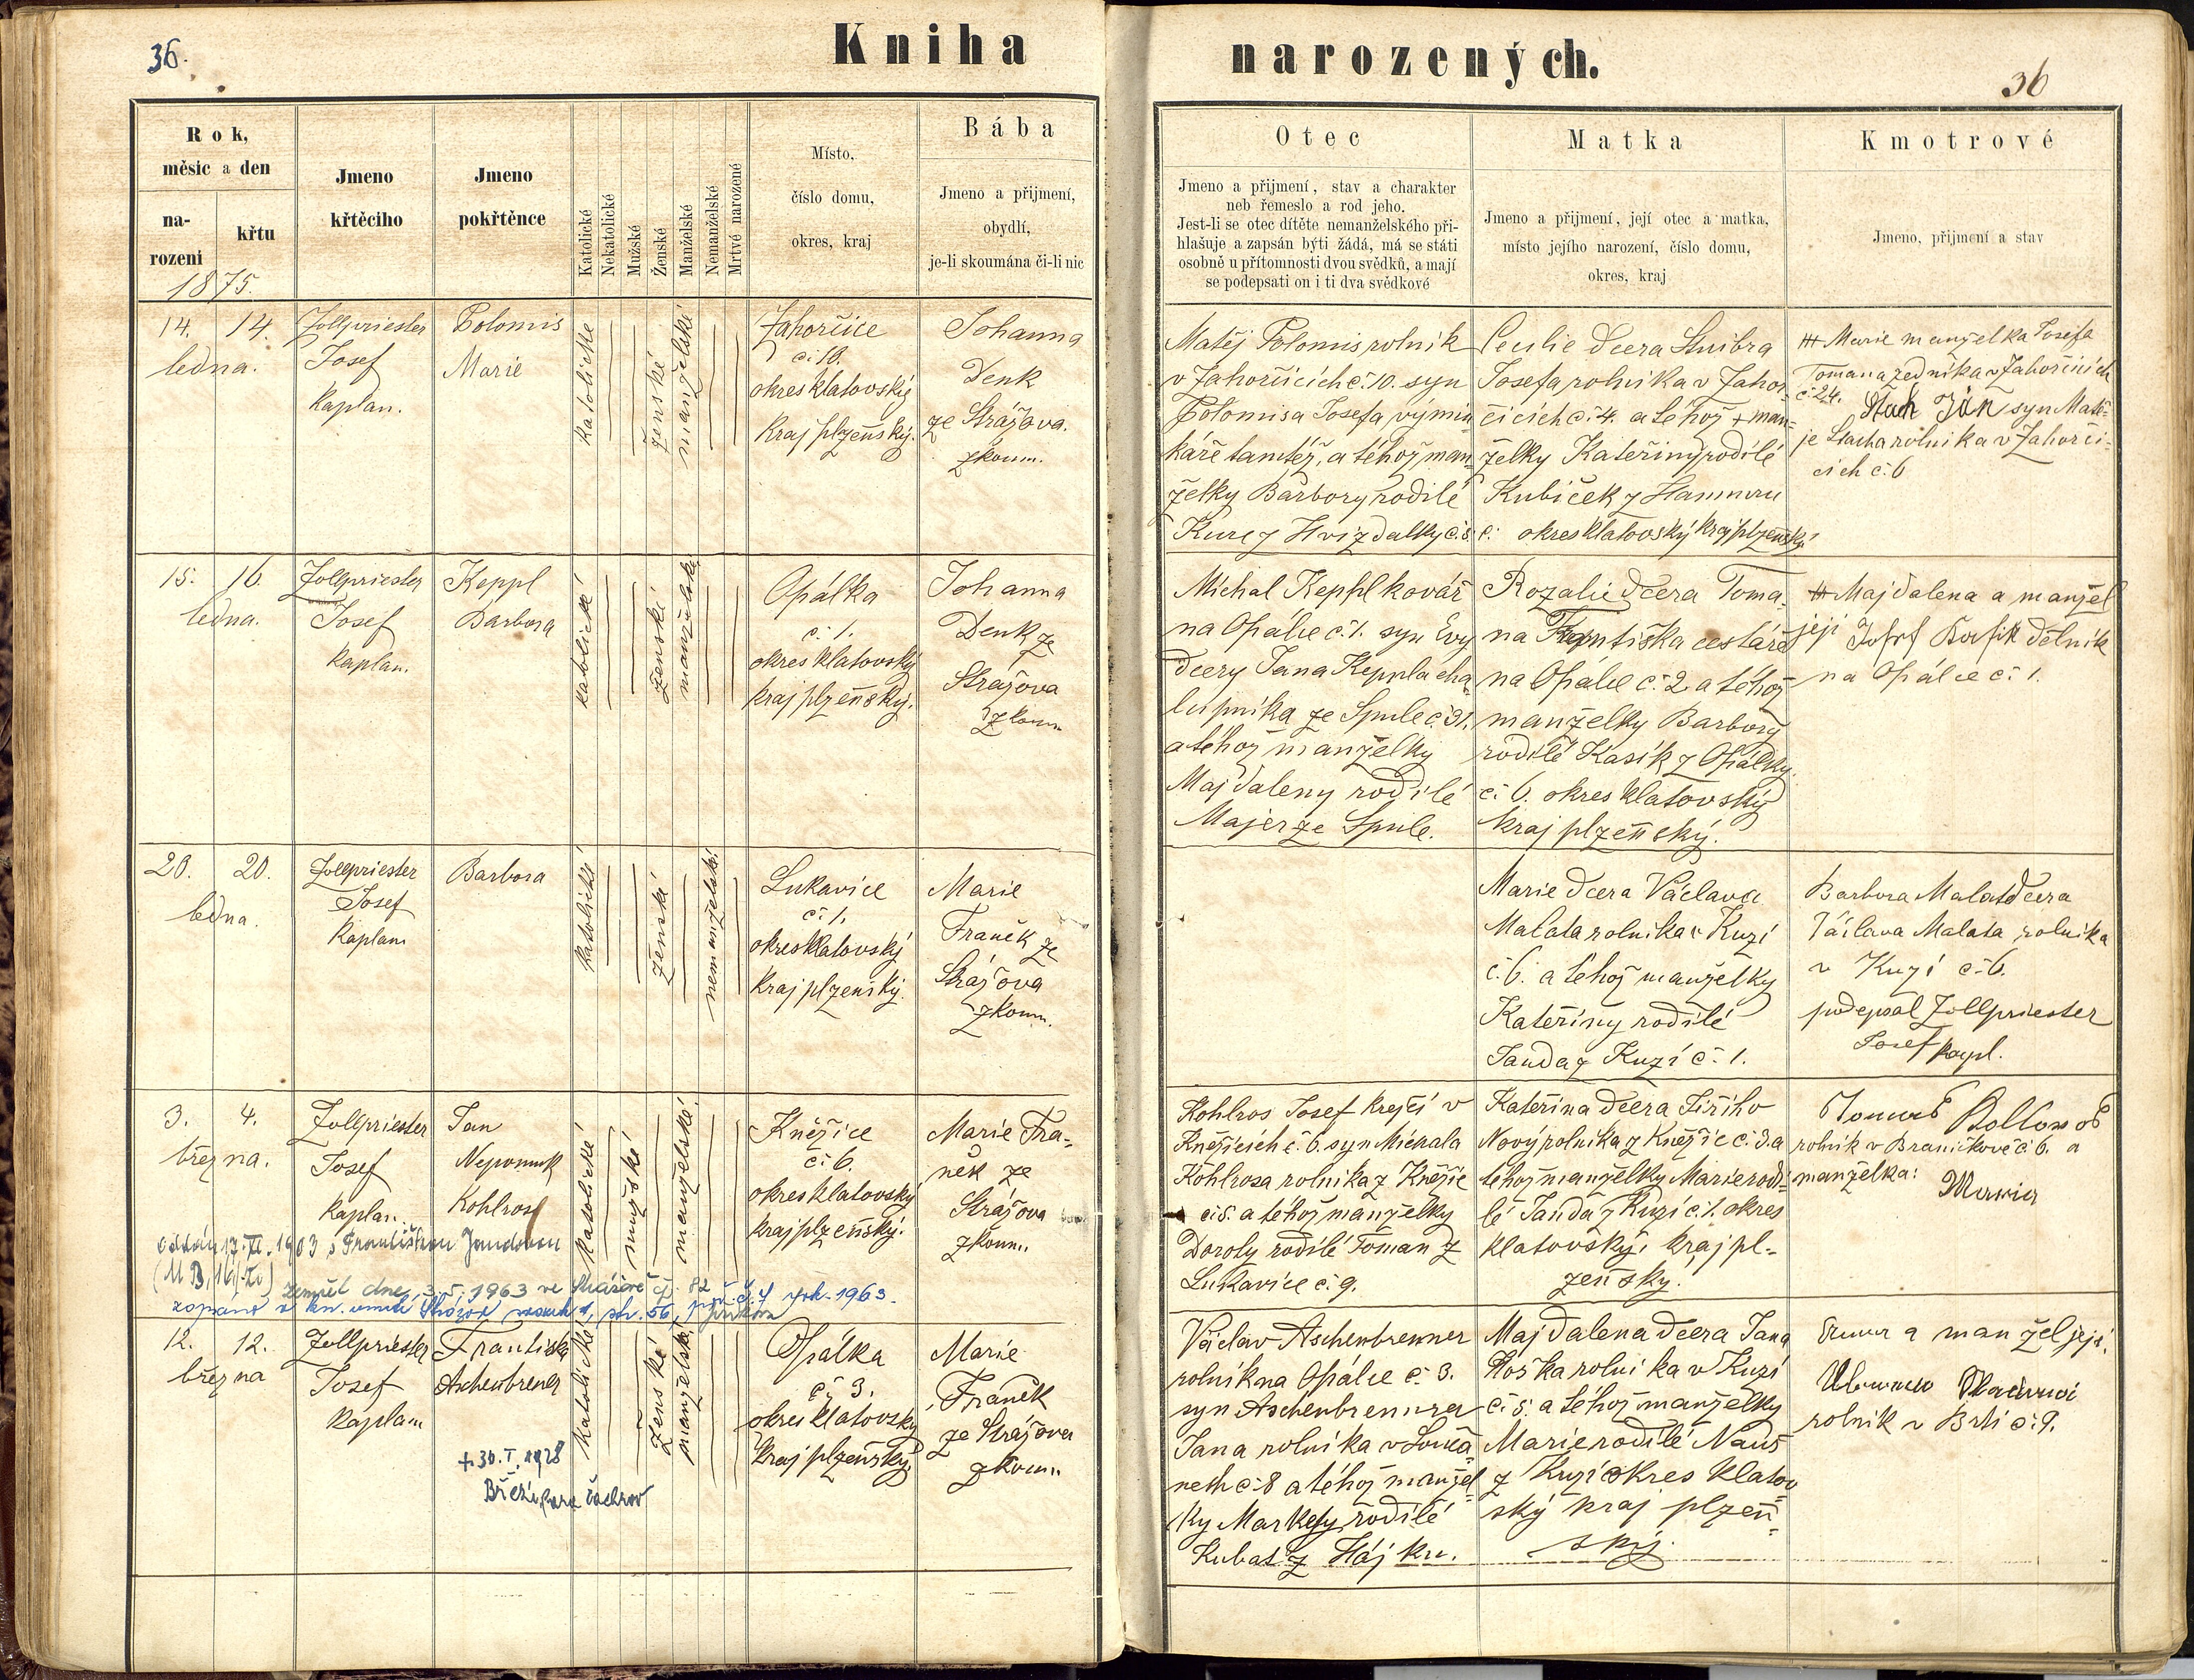 36.
Kniha
narozených.
36
Rok,
měsíc a den
na-
rozeni
křtu
1875.
Jmeno
křtěciho
Jmeno
pokřtěnce
Katolické
Nekatolické
Mužské
Ženské
Manželské
Nemanželské
Mrtvé narozené
Místo,
číslo domu,
okres, kraj
Bába
Jmeno a přijmení,
obydlí,
je-li skoumána či-li nic
Otec
Jmeno a přijmení, stav a charakter
neb řemeslo a rod jeho.
Jest-li se otec dítěte nemanželského při-
hlašuje a zapsán býti žádá, má se státi
osobně u přítomnosti dvou svědků, a mají
se podepsati on i ti dva svědkové
Matka
Jmeno a přijmení, její otec a matka,
místo jejího narození, číslo domu,
okres, kraj
Kmotrové
Jmeno, přijmení a stav
14. 14.
ledna.
Zollpriester
Josef
Kaplan.
Polomis
Marie
katolické
ženské
manželské
Zahorčice
č. 10.
okres klatovský
kraj plzeňský.
Johanna
Denk
ze Strážova.
zkoum.
Matěj Polomis rolník
v Zahorčicích č. 10. syn
Polomisa Josefa výmin
káře tamtéž, a téhož man
želky Barbory rodilé
Kure z Hvizdalky č. 8.
Cecilie dcera Stuibra
Josefa rolníka v Zahor
čicích č. 4. a téhož + man=
želky Kateřiny rodilé
Kubíček z Hamru
č. okres klatovský kraj plzeňský
+++ Marie manželka Josefa
Tomana zedníka v Zahorčicích
č. 24. Stach Jan syn Matě-
je Stacha rolníka v Zahorči-
cích č. 6
15. 16.
ledna.
Zollpriester
Josef
kaplan.
Keppl
Barbora
katolické
ženské
manželské
Opálka
č. 1.
okres klatovský
kraj plzeňský.
Johanna
Denk ze
Strážova
zkoum
Michal Keppl kovář
na Opálce č. 1. syn Evy
dcery Jana Keppla cha
lupníka ze Spule č. 31.
a téhož manželky
Majdaleny rodilé
Majer ze Spule.
Rozalie dcera Toma-
na Františka cestáře
na Opálce č. 2. a téhož
manželky Barbory
rodilé Kasík z Opálky
č. 6. okres klatovský
kraj plzeňský.
+++ Majdalena a manžel
její Josef dělník
na Opálce č. 1.
20. 20.
ledna.
Zollpriester
Josef
Kaplan
Barbora
katolické
ženské
nemanželské
Lukavice
č. 1.
okres klatovský
kraj plzeňský.
Marie
Franěk ze
Strážova
zkoum.
Marie dcera Václava
Malata rolníka v Kuzí
č. 6. a téhož manželky
Kateřiny rodilé
Janda z Kuzí č. 1.
Barbora Malat dcera
Václava Malata rolníka
v Kuzí č. 6.
podepsal Zollpriester
Josef kapl.
3. 4.
března.
Zollpriester
Josef
Kaplan.
Jan
Nepomuk
Kohlros
katolické
mužské
manželské
Kněžice
č. 6.
okres klatovský
kraj plzeňský.
Marie Fra-
něk ze
Strážova
zkoum.
oddán 17. II. 1903 s Františkou Jandovou
zemřel dne 3. I. 1963 ve Strážově čp. 82
zapsáno v kn. úmrtí Strážov str. 56, poř. č. 4 rok 1963.
Kohlros Josef krejčí v
Kněžicích č. 6. syn Michala
Kohlrosa rolníka z Kněžic
č. 5. a téhož manželky
Doroty rodilé Toman z
Lukavice č. 9.
Kateřina dcera Jiřího
Nový rolníka z Kněžic č. 3. a
téhož manželky Marie rodi-
lé Janda z Kuzí č. 1. okres
klatovský, kraj pl-
zeňský.
rolník v Braníčkově č. 6. a
manželka:
Maria
12. 12.
března
Zollpriester
Josef
Kaplan
Františka
Aschenbrener
+ 30. I. 1928
Březí, fara Čachrov
katolické
ženské
manželské
Opálka
č. 3.
okres klatovský
kraj plzeňský.
Marie
Franěk
ze Strážova
zkoum.
Václav Aschenbrenner
rolník na Opálce č. 3.
syn Aschenbrennera
Jana rolníka v Louča
nech č. 8 a téhož manžel
ky Markety rodilé
Kubat z Hájku.
Majdalena dcera Jana
Hoška rolníka v Kuzí
č. 5. a téhož manželky
Marie rodilé Nauš
z Kuzí okres klatov
ský kraj plzeň-
ský.
a manžel její
rolník v Brtí č. 9.